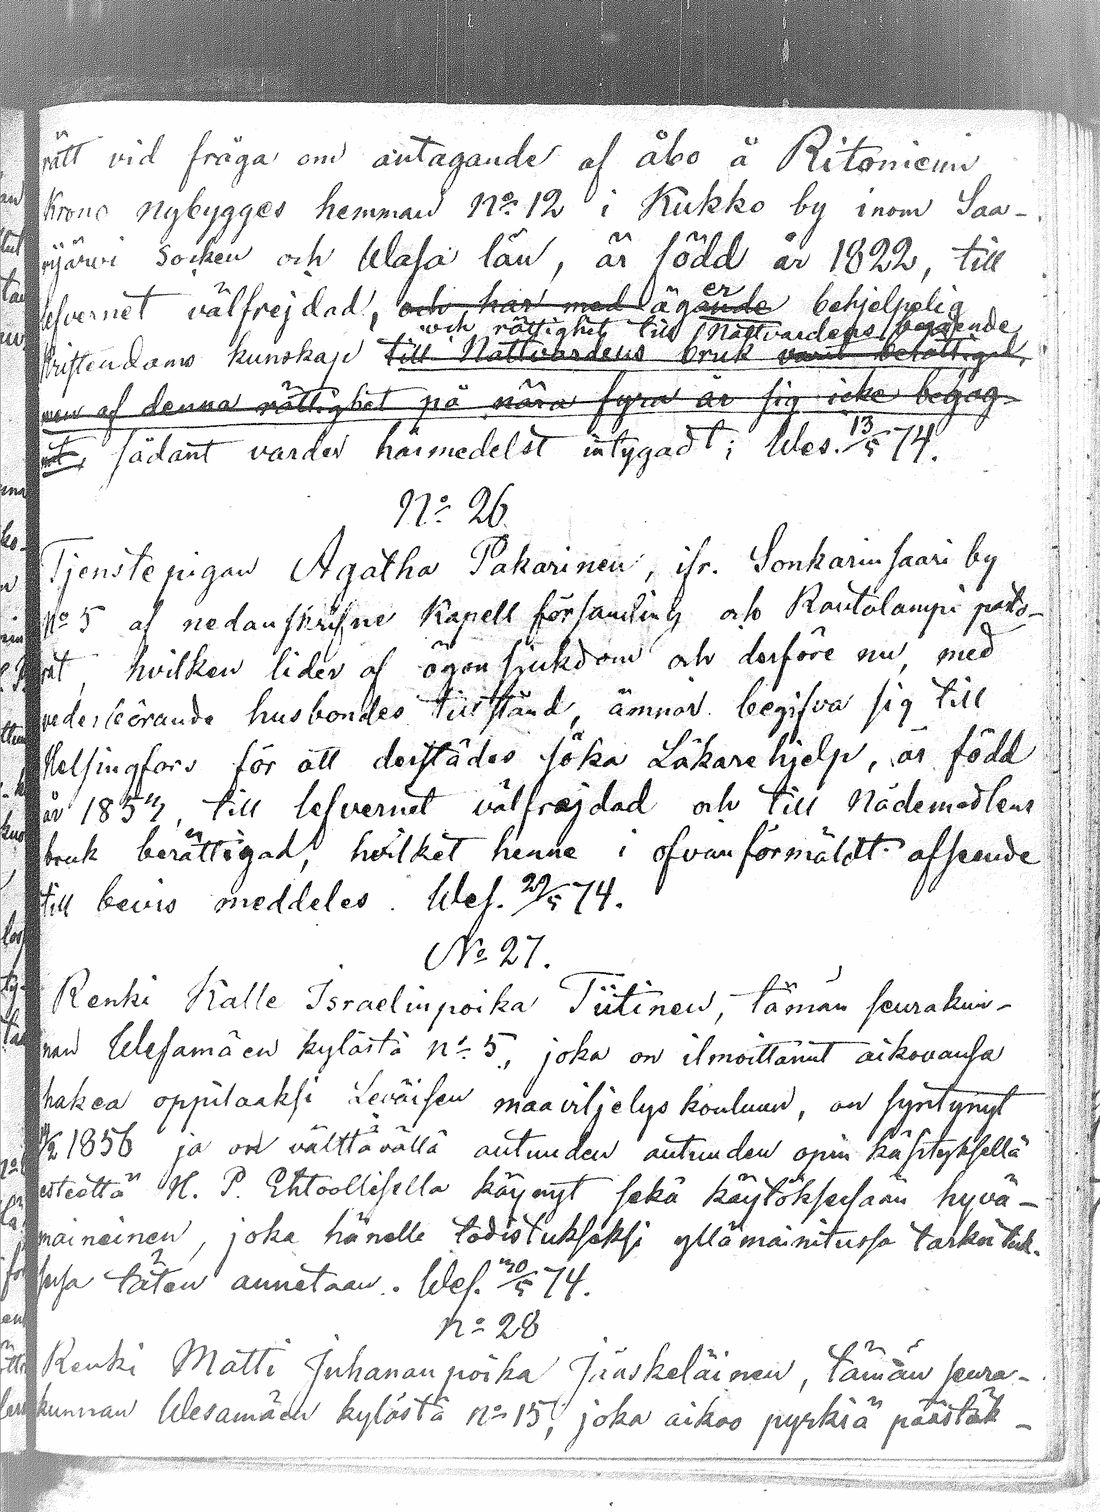 rätt vid fråga om antagande af åbo å Ritoniemi
Krono nybygges hemman No 12 i Kukko by inom Saa-
rijärvi Socken och Wasa län, är född år 1822, till
lefvernet välfrejdad, och har med ägande er behjelpelig
och rättighet till Nattvardens begående
Kristendoms kunskap till Nattvardens bruk varit berättigad,
men af denna rättighet på nära fyra år sig icke begag-
nat, sådant varder härmedelst intygadt; Wes. 13/5 74.
No 26
Tjenstepigan Agatha Pakarinen, ifr. Sonkarinsaari by
No 5 af nedanskrifne Kapell församling och Rautalampi pasto-
rat, hvilken lider af ögonsjukdom och derföre nu, med
vederbörande husbondes tillstånd, ämnar begifva sig till
Helsingfors för att derstädes söka Läkarehjelp, är född
år 1857, till lefvernet välfrejdad och till Nådemedlens
bruk berättigad, hvilket henne i ofvanförmäldt afseende
till bevis meddeles. Wes. 29/5 74.
No 27.
Renki Kalle Israelinpoika Tiitinen, tämän seurakun-
nan Wesamäen kylästä no 5, joka on ilmoittanut aikovansa
hakea oppilaaksi Leväisen maaviljelyskouluun, on syntynyt
1856 ja on välttävällä autuuden opin käsityksellä
esteettä H. P. Ehtoollisella käynyt sekä käytöksessään hyvä-
maineinen, joka hänelle todistukseksi yllämainitussa tarkoituk-
sessa täten annetaan. Wes. 30/5 74.
no 28
Renki Matti Juhananpoika Jääskeläinen, tämän seura-
kunnan Wesamäen kylästä no 15, joka aikoo pyrkiä päästäk-